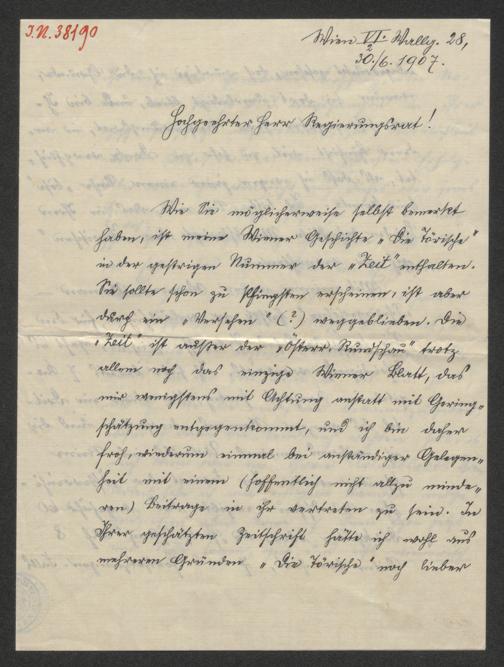 I.N. 38190
Wien VI. Wallg. 28,
2
30./6. 1907.
Hochgeehrter Herr Regierungsrat!
Wie Sie möglicherweise selbst bemerkt
haben, ist meine Wiener Geschichte „Die Törische"
in der gestrigen Nummer der „Zeit" enthalten.
Sie sollte schon zu Pfingsten erscheinen, ist aber
durch ein „Versehen" (?) weggeblieben. Die
„Zeit" ist außer der „Österr. Rundschau" trotz
allem noch das einzige Wiener Blatt, das
mir wenigstens mit Achtung anstatt mit Gering-
schätzung entgegenkommt, und ich bin daher
froh, wiederum einmal bei anständiger Gelegen-
heit mit einem (hoffentlich nicht allzu minde-
ren) Beitrage in ihr vertreten zu sein. In
Ihrer geschätzten Zeitschrift hätte ich wohl aus
mehreren Gründen „Die Törische" noch lieber